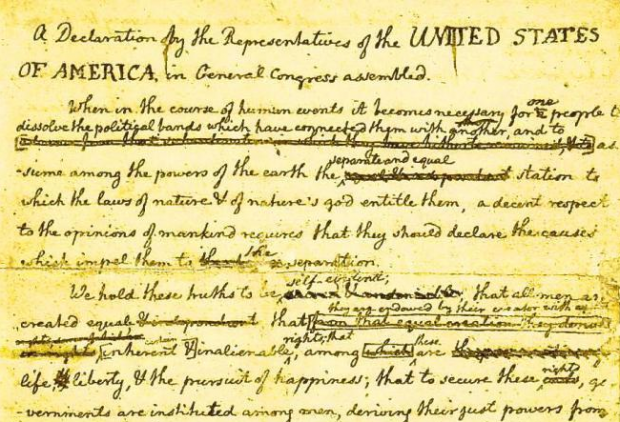 A Declaration by the Representatives of the UNITED STATES
OF AMERICA, in General Congress assembled.
When in the course of human events it becomes necessary for one people to
dissolve the political bands which have connected them with another, and to
as-
separate and equal
-sume among the powers of the earth the station to
which the laws of nature & of nature's god entitle them, a decent respect
to the opinions of mankind requires that they should declare the causes
which impel them to the separation.
self-evident;
We hold these truths to be, that all men are
they are endowed by their creator with
created equal & independent that from that equal creation they derive
rights; that these
inherent & inalienable, among which are
life, & liberty, & the pursuit of happiness; that to secure these rights, go-
-vernments are instituted among men, deriving their just powers from